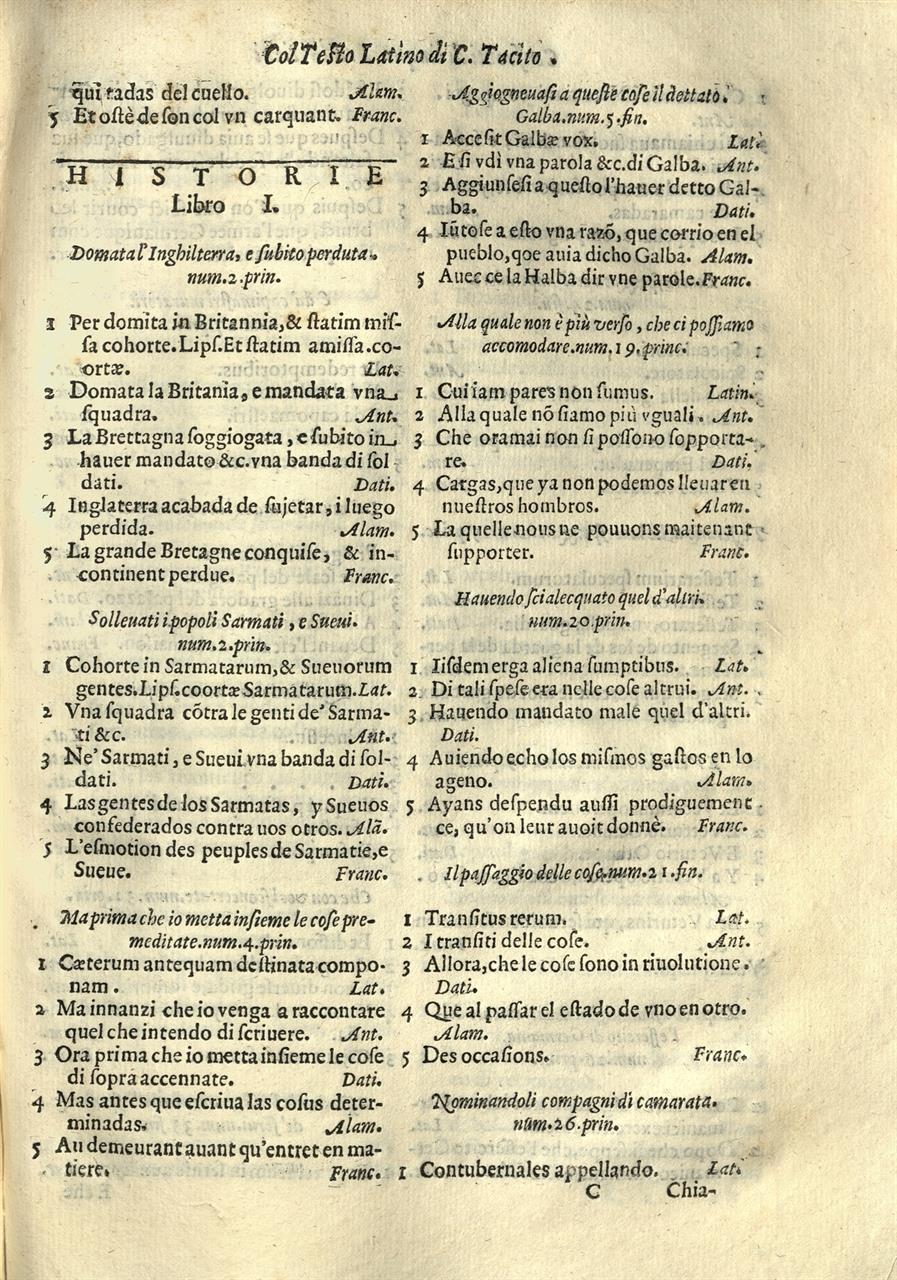 Col Testo Latino di C. Tacito.
qui tadas del cuello. Alam.
5 Et ostè de son col vn carquant. Franc.
HISTORIE
Libro I.
Domata l'Inghilterra, e subito perduta.
num.2.prin.
1 Per domita in Britannia,& statim mis-
sa cohorte.Lips.Et statim amissa.co-
ortæ. Lat.
2 Domata la Britania, e mandata vna
squadra. Ant.
3 La Brettagna soggiogata, e subito in
hauer mandato &c.vna banda di sol
dati. Dati.
4 Inglaterra acabada de sujetar, i luego
perdida. Alam.
5 La grande Bretagne conquise, & in-
continent perdue. Franc.
Solleuati i popoli Sarmati, e Sueui.
num.2.prin.
1 Cohorte in Sarmatarum,& Sueuorum
gentes.Lips.coortæ Sarmatarum.Lat.
2 Vna squadra cõtra le genti de' Sarma-
ti &c. Ant.
3 Ne' Sarmati, e Sueui vna banda di sol-
dati. Dati.
4 Las gentes de los Sarmatas, y Sueuos
confederados contra uos otros. Alã.
5 L'esmotion des peuples de Sarmatie,e
Sueue. Franc.
Ma prima che io metta insieme le cose pre-
meditate.num.4.prin.
1 Cæterum antequam destinata compo-
nam. Lat.
2 Ma innanzi che io venga a raccontare
quel che intendo di scriuere. Ant.
3 Ora prima che io metta insieme le cose
di sopra accennate. Dati.
4 Mas antes que escriua las cosus deter-
minadas. Alam.
5 Au demeurant auant qu'entret en ma-
tiere. Franc.
Aggiogneuasi a queste cose il dettato.
Galba.num.5.fin.
1 Accesit Galbæ vox. Lat.
2 E si vdì vna parola &c.di Galba. Ant.
3 Aggiunsesi a questo l'hauer detto Gal-
ba. Dati.
4 Iũtose a esto vna razõ, que corrio en el
pueblo, qoe auia dicho Galba. Alam.
5 Auec ce la Halba dir vne parole.Franc.
Alla quale non è più verso, che ci possiamo
accomodare.num.19.princ.
1 Cui iam pares non sumus. Latin.
2 Alla quale nõ siamo più vguali. Ant.
3 Che oramai non si possono sopporta-
re. Dati.
4 Cargas,que ya non podemos lleuar en
nuestros hombros. Alam.
5 La quelle nous ne pouuons maitenant
supporter. Franc.
Hauendo scialecquato quel d'altri.
num.20.prin.
1 Iisdem erga aliena sumptibus. Lat.
2 Di tali spese era nelle cose altrui. Ant.
3 Hauendo mandato male quel d'altri.
Dati.
4 Auiendo echo los mismos gastos en lo
ageno. Alam.
5 Ayans despendu aussi prodiguement
ce, qu'on leur auoit donnè. Franc.
Il passaggio delle cose.num.21.fin.
1 Transitus rerum. Lat.
2 I transiti delle cose. Ant.
3 Allora,che le cose sono in riuolutione.
Dati.
4 Que al passar el estado de vno en otro.
Alam.
5 Des occasions. Franc.
Nominandoli compagni di camarata.
num.26.prin.
1 Contubernales appellando. Lat.
C Chia-